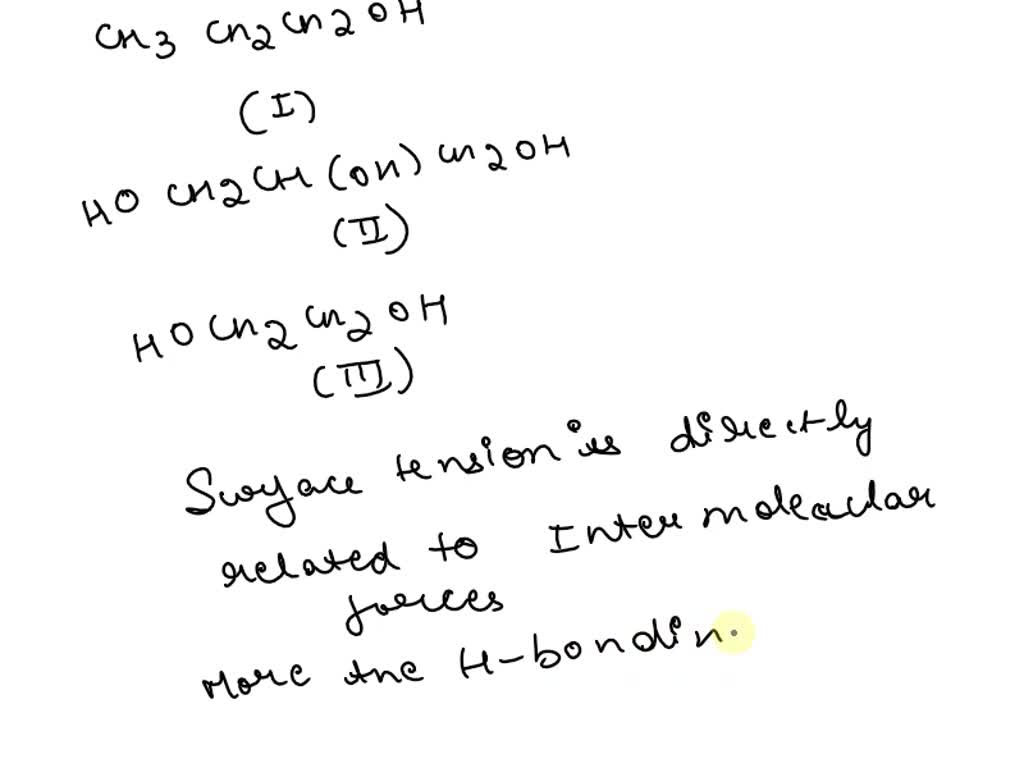 CH3 CH2CH2OH
(I)
HO CH2CH(OH)CH2OH
(II)
HOCH2CH2OH
(III)
Surface tension is directly
related to Intermolecular
forces
More the H-bondin